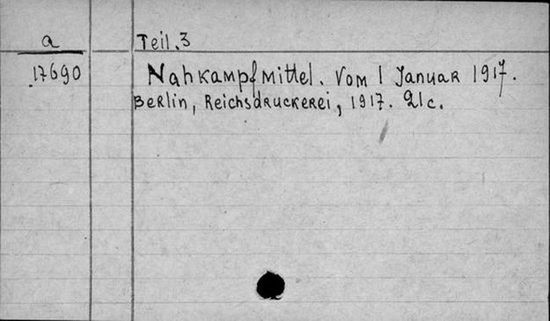 a Teil.3
17690 Nahkampfmittel. Vom 1 Januar 1917.
Berlin, Reichsdruckerei, 1917. 21c.